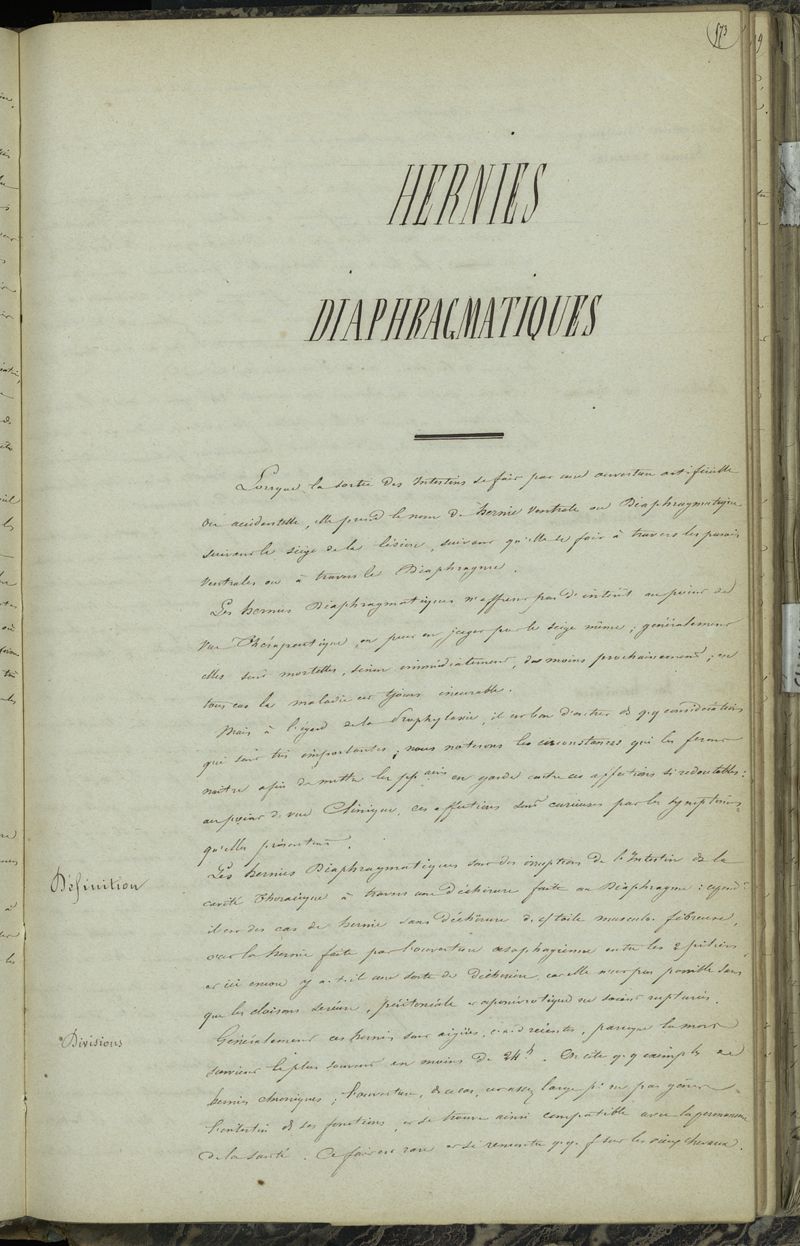 573
HERNIES
DIAPHRAGMATIQUES
Lorsque la sortie des Intestins se fait par une ouverture artificielle
ou accidentelle, elle prend le nom de hernie Ventrale ou Diaphragmatique
suivant le siège de la lésion, suivant qu'elle se fait à travers les parois
Ventrales ou à travers le Diaphragme.
Les hernies Diaphragmatiques n'offrent pas d'intérêt au point de
vue Thérapeutique, on peut en juger par le siège même ; généralement
elles sont mortelles, sinon immédiatement, du moins prochainement ; en
tous cas la maladie est tjours incurable.
Mais à l'égard de la Prophylaxie, il est bon d'entrer ds qq considérations
qui sont très importantes ; nous noterons les circonstances qui les feront
naître afin de mettre les pp aires en garde contre ces affections si redoutables :
au point de vue Clinique, ces affections sont curieuses par les symptômes
qu'elles présentent.
Définition
Les hernies Diaphragmatiques sont des irruptions de l'Intestin ds la
cavité Thoracique à travers une Déchirure faite au Diaphragme : cepend.t
il est des cas de hernie sans déchirure de c/ toile musculo fibreuse,
c'est la hernie faite par l'ouverture œsophagienne entre les 2 piliers,
et ici encore y a-t-il une sorte de Déchirure, car elle n'est pas possible sans
que les cloisons séreuse, péritonéale et aponévrotique ne soient rupturées.
Divisions
Généralement ces hernies sont aigües, c.à.d récentes, parceque la mort
survient le plus souvent en moins de 24h. On cite qq exemples de
hernies chroniques ; l'ouverture, ds ce cas, est assez large pr ne pas gêner
l'intestin ds ses fonctions, et se trouve ainsi compatible avec la permanence
de la santé. Ce fait est rare et se rencontre qq f sur les vieux chevaux.